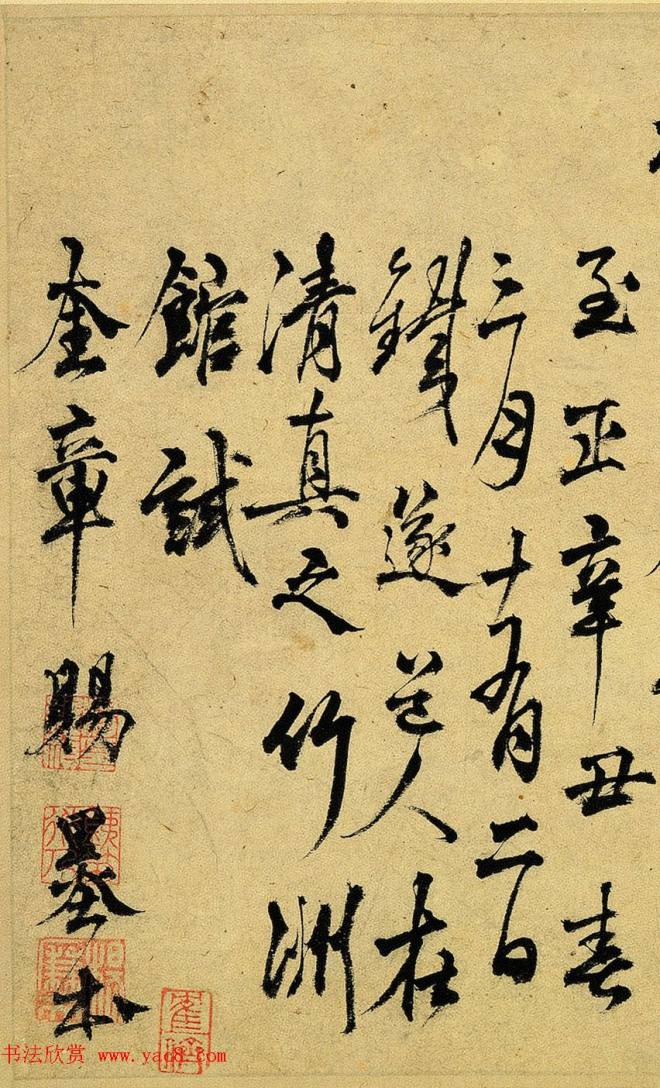 至正辛丑春
三月十有二日
鐵篴道人在
清真之竹洲
館試
奎章賜墨本
书法欣赏 www.yac8.com